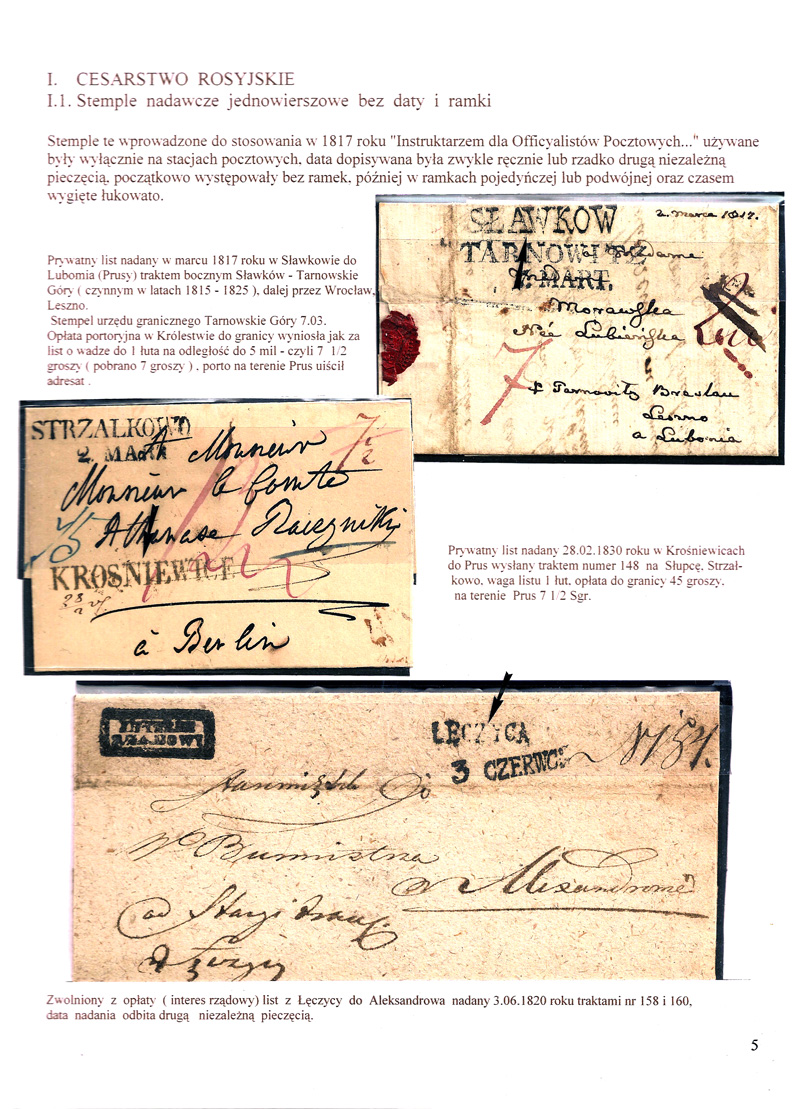 I. CESARSTWO ROSYJSKIE
I.1. Stemple nadawcze jednowierszowe bez daty i ramki
Stemple te wprowadzone do stosowania w 1817 roku "Instruktarzem dla Officyalistów Pocztowych..." używane
były wyłącznie na stacjach pocztowych, data dopisywana była zwykle ręcznie lub rzadko drugą niezależną
pieczęcią, początkowo występowały bez ramek, później w ramkach pojedyńczej lub podwójnej oraz czasem
wygięte łukowato.
Prywatny list nadany w marcu 1817 roku w Sławkowie do
Lubomia (Prusy) traktem bocznym Sławków - Tarnowskie
Góry ( czynnym w latach 1815 - 1825 ), dalej przez Wrocław,
Leszno.
Stempel urzędu granicznego Tarnowskie Góry 7.03.
Opłata portoryjna w Królestwie do granicy wyniosła jak za
list o wadze do 1 łuta na odległość do 5 mil - czyli 7 1/2
groszy ( pobrano 7 groszy ) , porto na terenie Prus uiścił
adresat .
SŁAWKÓW
2. Marca 1817.
TARNOWITZ
7. MART.
a Madame
Morawska
Neé Lubieńska
7
p Tarnovitz Breslau
Lesno
a Lubonia
STRZALKOWO
2. MART
7 1/2
A Monsieur
Monsieur le Comte
Athanase Raczynski
45
KROSNIEWICE
28/2
à Berlin
Prywatny list nadany 28.02.1830 roku w Krośniewicach
do Prus wysłany traktem numer 148 na Słupcę, Strzał-
kowo, waga listu 1 łut, opłata do granicy 45 groszy,
na terenie Prus 7 1/2 Sgr.
INTERES
RZĄDOWY
ŁĘCZYCA
3 CZERWCA
Do
W Burmistrza
Zwolniony z opłaty ( interes rządowy) list z Łęczycy do Aleksandrowa nadany 3.06.1820 roku traktami nr 158 i 160,
data nadania odbita drugą niezależną pieczęcią.
5